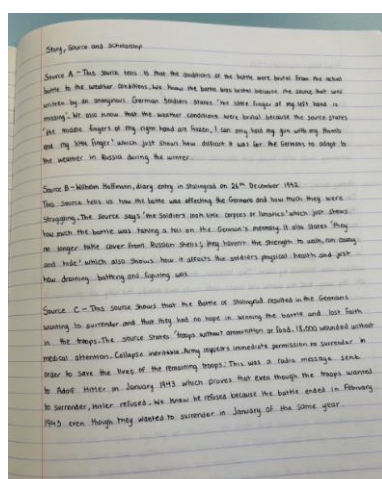 Story, Source and Scholarship
Source A - This source tells us that the conditions of the battle were brutal from the actual
battle to the weather conditions. We know the battle was brutal because the source that was
written by an anonymous German soldiers states 'the little finger of my left hand is
missing'. We also know that the weather conditions were brutal because the source states
'the middle fingers of my right hand are frozen, I can only hold my gun with my thumb
and my little finger' which just shows how difficult it was for the Germans to adapt to
the weather in Russia during the winter.
Source B - Wilhelm Hoffmann, diary entry in Stalingrad on 26th December 1942
This source tells us how the battle was affecting the Germans and how much they were
struggling. The source says 'the soldiers look like corpses or lunatics' which just shows
how much the battle was taking a toll on the German's mentality. It also states 'they
no longer take cover from Russian shells; they haven't the strength to walk, run away
and hide' which also shows how it affects the soldiers physical health and just
how draining battling and fighting was.
Source C - This source shows that the Battle of Stalingrad resulted in the Germans
wanting to surrender and that they had no hope in winning the battle and lost faith
in the troops. The source states 'troops without ammunition or food. 18,000 wounded without
medical attention. Collapse inevitable. Army requests immediate permission to surrender in
order to save the lives of the remaining troops.' This was a radio message sent
to Adolf Hitler in January 1943 which proves that even though the troops wanted
to surrender, Hitler refused. We know he refused because the battle ended in February
1943 even though they wanted to surrender in January of the same year.